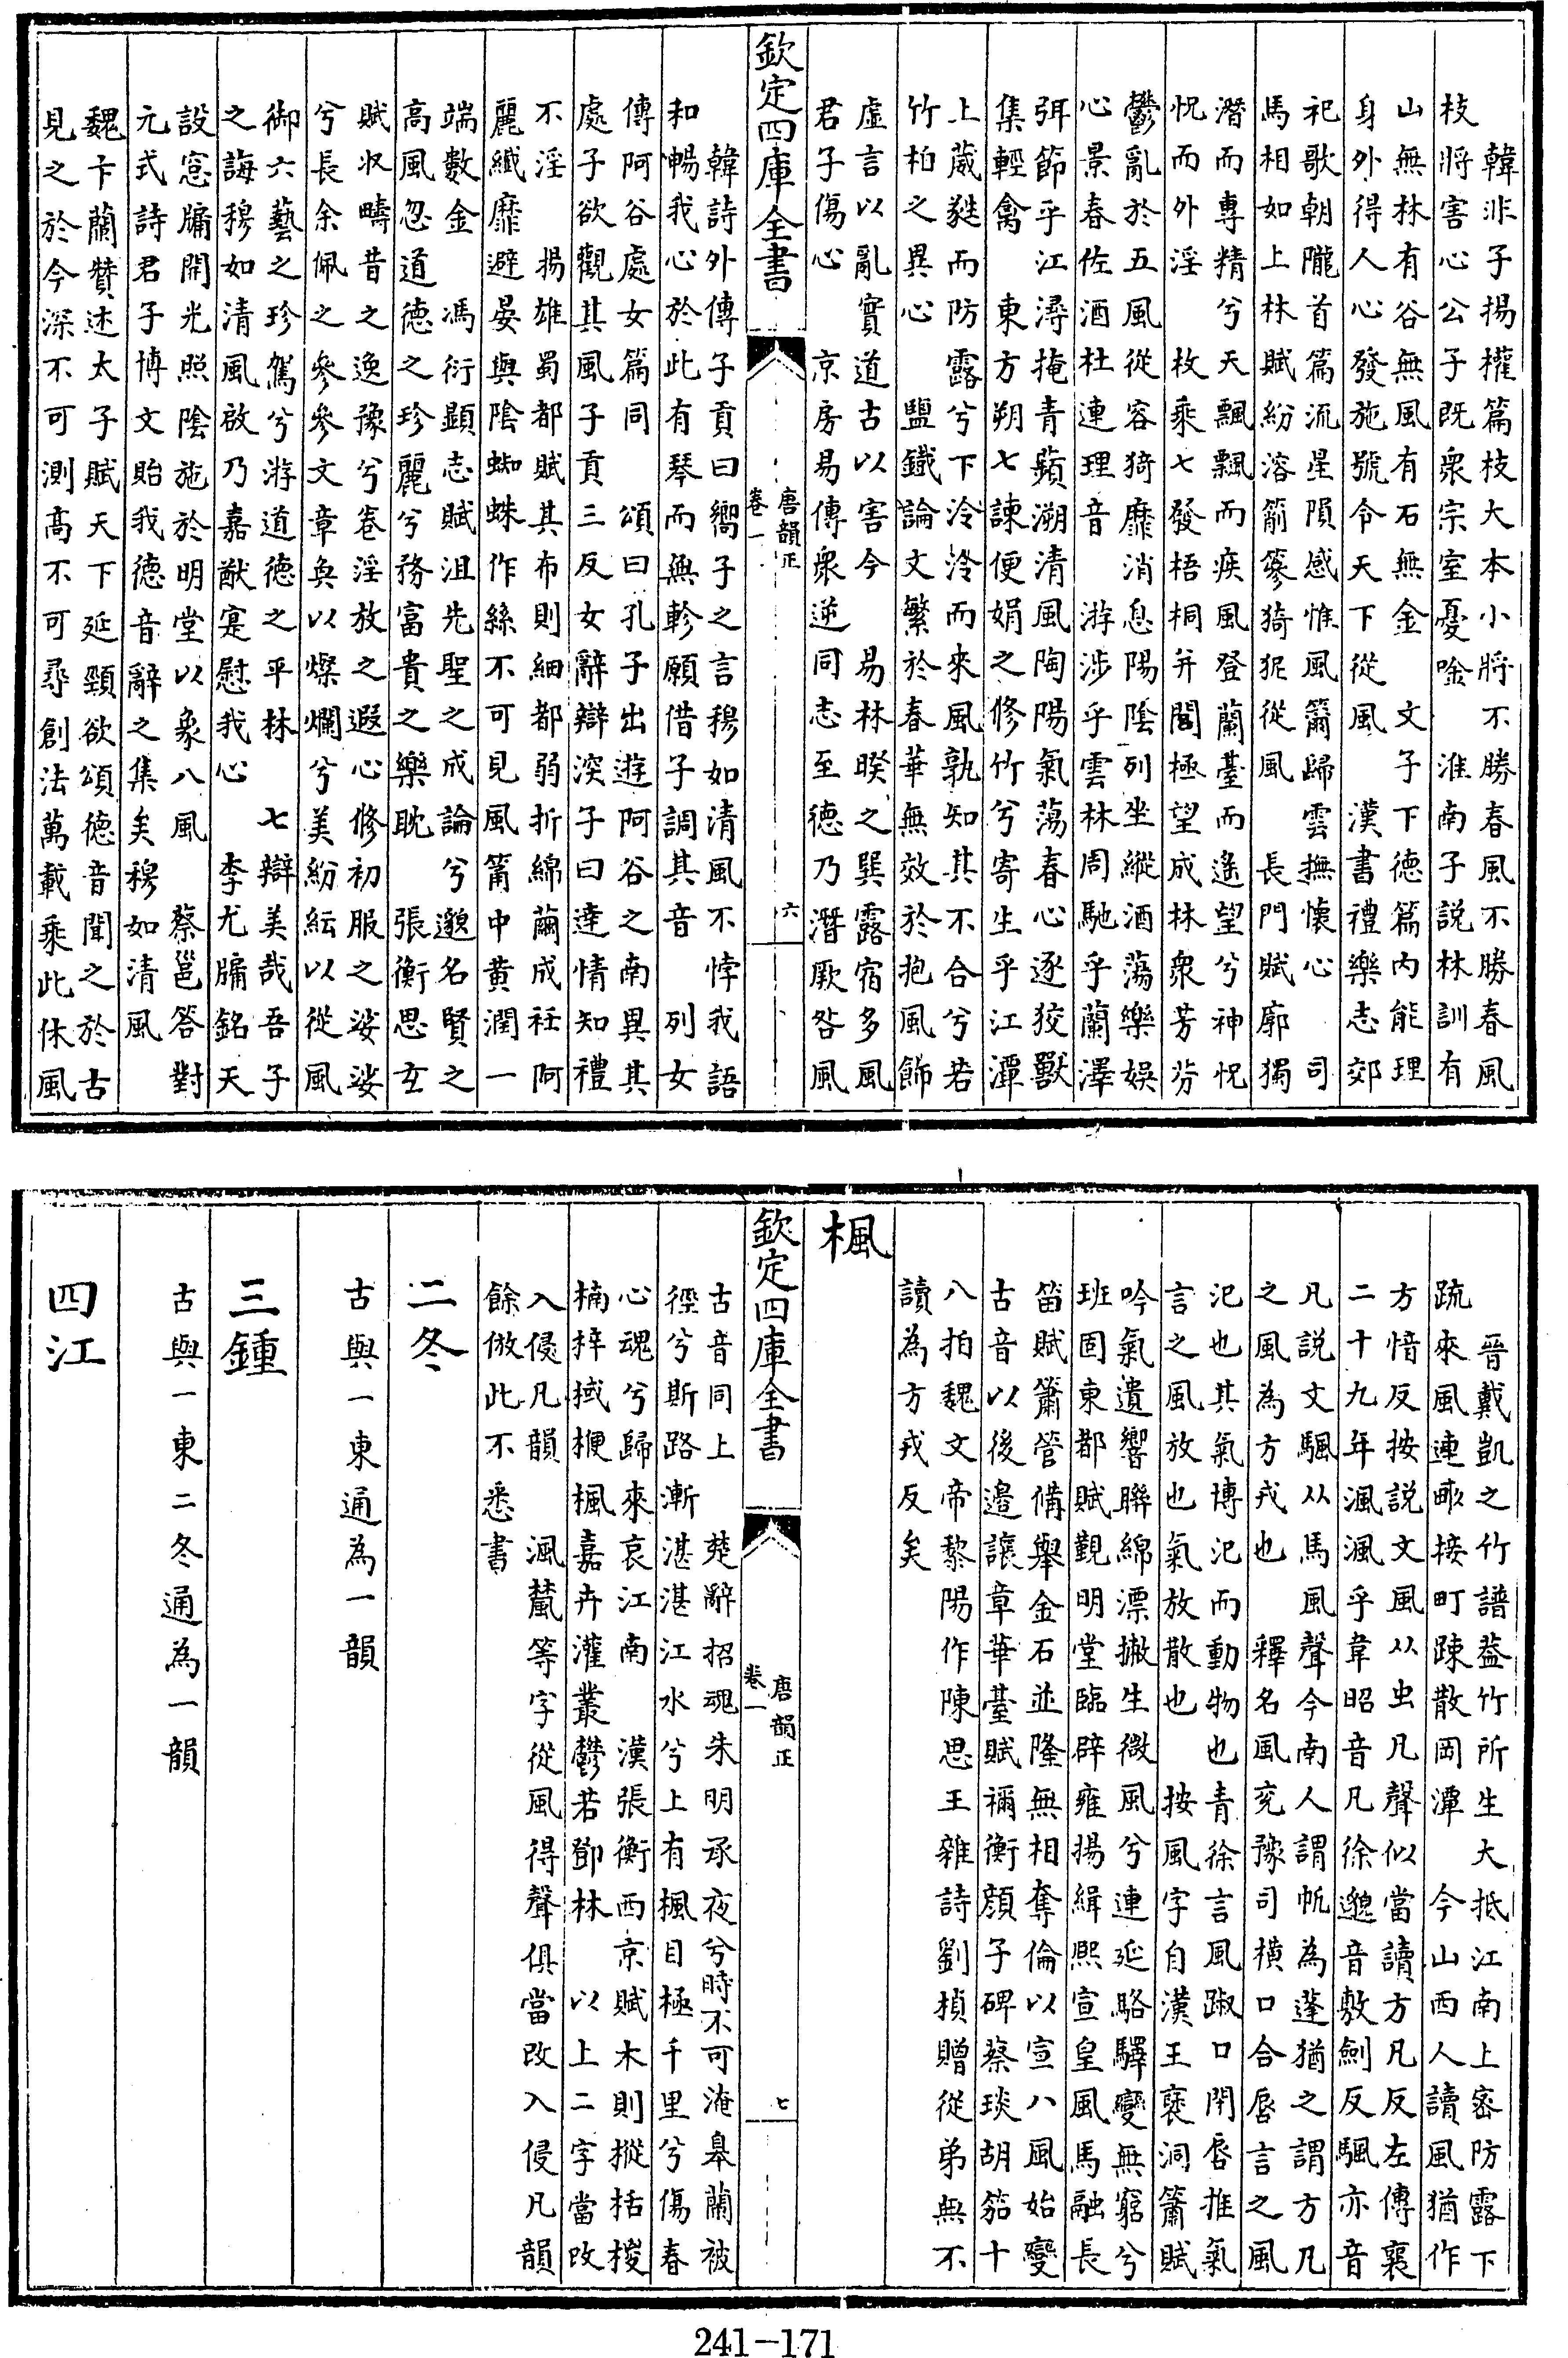 韓非子揚權篇枝大本小將不勝春風不勝春風
枝將害心公子既衆宗室憂唫　淮南子説林訓有
山無林有谷無風有石無金　文子下德篇内能理
身外得人心發施號令天下從風　漢書禮樂志郊
祀歌朝隴首篇流星隕感惟風籋歸雲撫懷心　司
馬相如上林賦紛溶箾蔘猗狔從風　長門賦廓獨
潛而專精兮天飄飄而疾風登蘭臺而遙望兮神怳
怳而外淫　枚乘七發梧桐并閭極望成林衆芳芬
鬱亂於五風從容猗靡消息陽陰列坐縱酒蕩樂娛
心景春佐酒杜連理音　游涉乎雲林周馳乎蘭澤
弭節乎江潯掩青蘋溯清風陶陽氣蕩春心逐狡獸
集輕禽　東方朔七諫便娟之修竹兮寄生乎江潭
上葳蕤而防露兮下泠泠而來風孰知其不合兮若
竹柏之異心　鹽鐵論文繁於春華無效於抱風飾
虛言以亂實道古以害今　易林暌之巽露宿多風
君子傷心　京房易傳衆逆同志至德乃潛厥咎風
欽定四庫全書
唐韻正
卷一
六
韓詩外傳子貢曰嚮子之言穆如清風不悖我語
和暢我心於此有琴而無軫願借子調其音　列女
傳阿谷處女篇同　頌曰孔子出遊阿谷之南異其
處子欲觀其風子貢三反女辭辯深子曰達情知禮
不淫　揚雄蜀都賦其布則細都弱折綿繭成衽阿
麗纖靡避晏與陰蜘蛛作絲不可見風筩中黄潤一
端數金　馮衍顯志賦沮先聖之成論兮邈名賢之
高風忽道德之珍麗兮務富貴之樂耽　張衡思玄
賦收疇昔之逸豫兮卷淫放之遐心修初服之娑娑
兮長余佩之參參文章奐以燦爛兮美紛紜以從風
御六藝之珍駕兮游道德之平林　七辯美哉吾子
之誨穆如清風啟乃嘉猷寔慰我心　李尤牖銘天
設窓牖開光照陰施於明堂以象八風　蔡邕答對
元式詩君子博文貽我德音辭之集矣穆如清風
魏卞蘭贊述太子賦天下延頸欲頌德音聞之於古
見之於今深不可測高不可尋創法萬載乘此休風
晉戴凱之竹譜蓋竹所生大抵江南上密防露下
疏來風連畝接町踈散岡潭　今山西人讀風猶作
方愔反按説文風从虫凡聲似當讀方凡反左傳襄
二十九年渢渢乎韋昭音凡徐邈音敷劒反颿亦音
凡説文颿从馬風聲今南人謂帆為蓬猶之謂方凡
之風為方戎也　釋名風兖豫司橫口合唇言之風
氾也其氣博氾而動物也青徐言風踧口開唇推氣
言之風放也氣放散也　按風字自漢王襃洞簫賦
吟氣遺響聯綿漂撇生微風兮連延駱驛變無窮兮
班固東都賦觀明堂臨辟雍揚緝熙宣皇風馬融長
笛賦簫管備舉金石並隆無相奪倫以宣八風始變
古音以後邊讓章華臺賦禰衡顔子碑蔡琰胡笳十
八拍魏文帝黎陽作陳思王雜詩劉楨贈從弟無不
讀為方戎反矣
楓
欽定四庫全書
唐韻正
卷一
七
古音同上　楚辭招魂朱明承夜兮時不可淹皋蘭被
徑兮斯路漸湛湛江水兮上有楓目極千里兮傷春
心魂兮歸來哀江南　漢張衡西京賦木則樅栝椶
楠梓棫楩楓嘉卉灌叢鬱若鄧林　以上二字當改
入侵凡韻　渢檒等字從風得聲俱當改入侵凡韻
餘倣此不悉書
二冬
古與一東通為一韻
三鍾
古與一東二冬通為一韻
四江
241-171